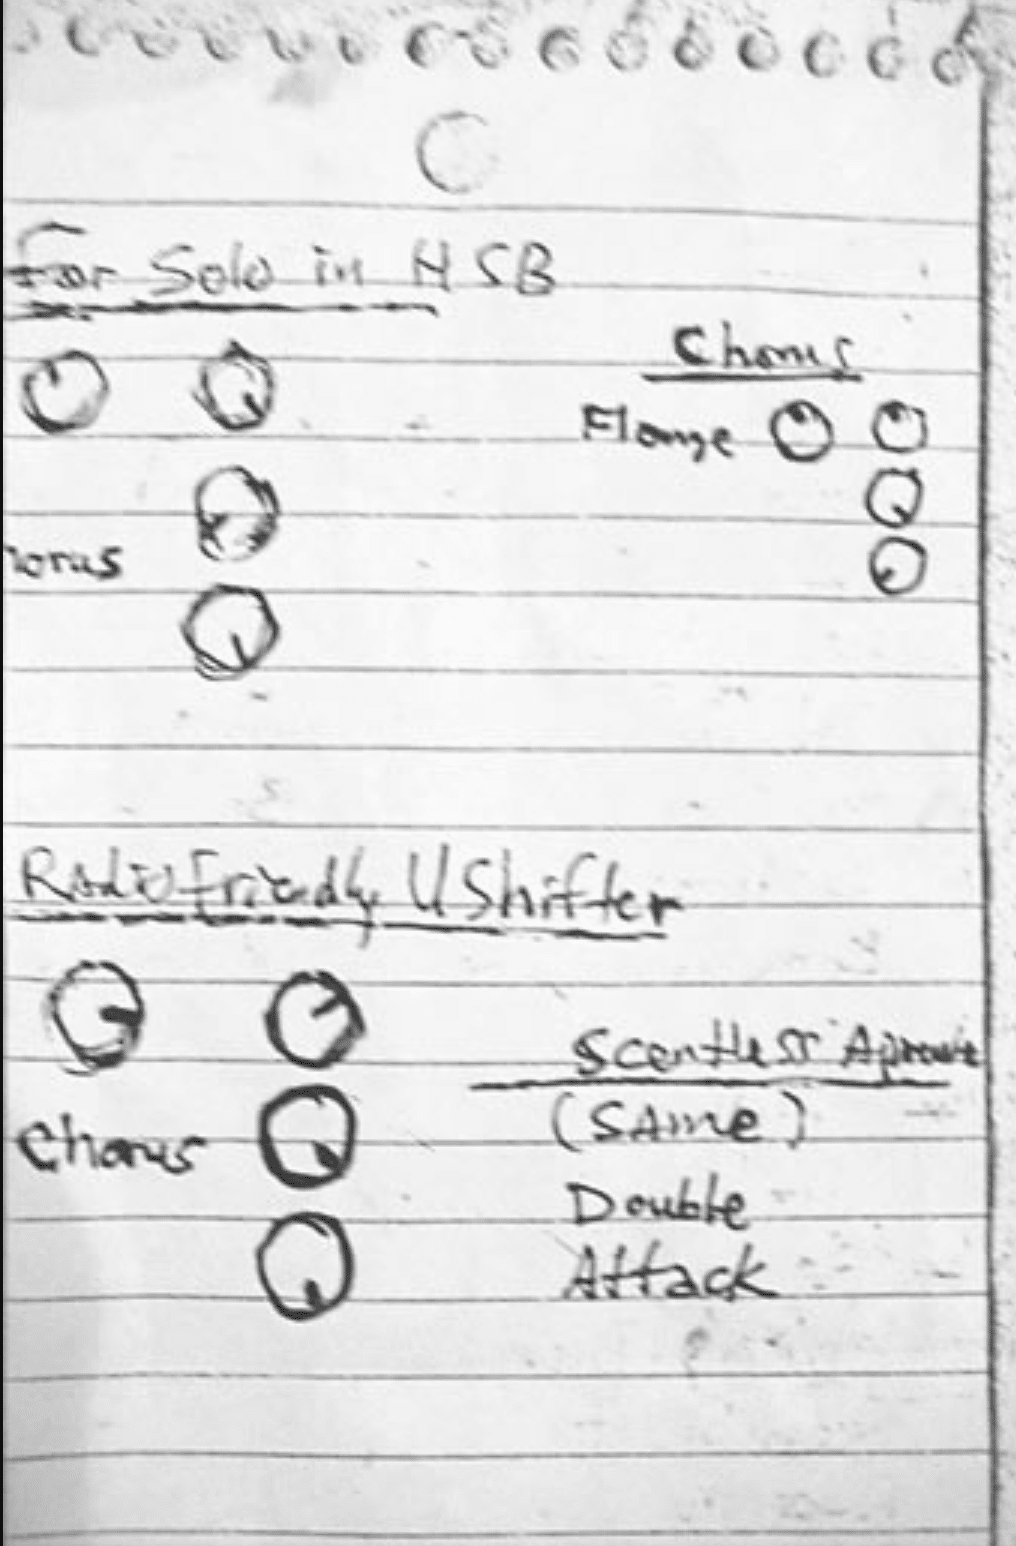 For Solo in HSB
Chorus
Flange
horus
Radio Friendly U Shifter
Scentless Aprente
(SAme)
Chorus
Double
Attack